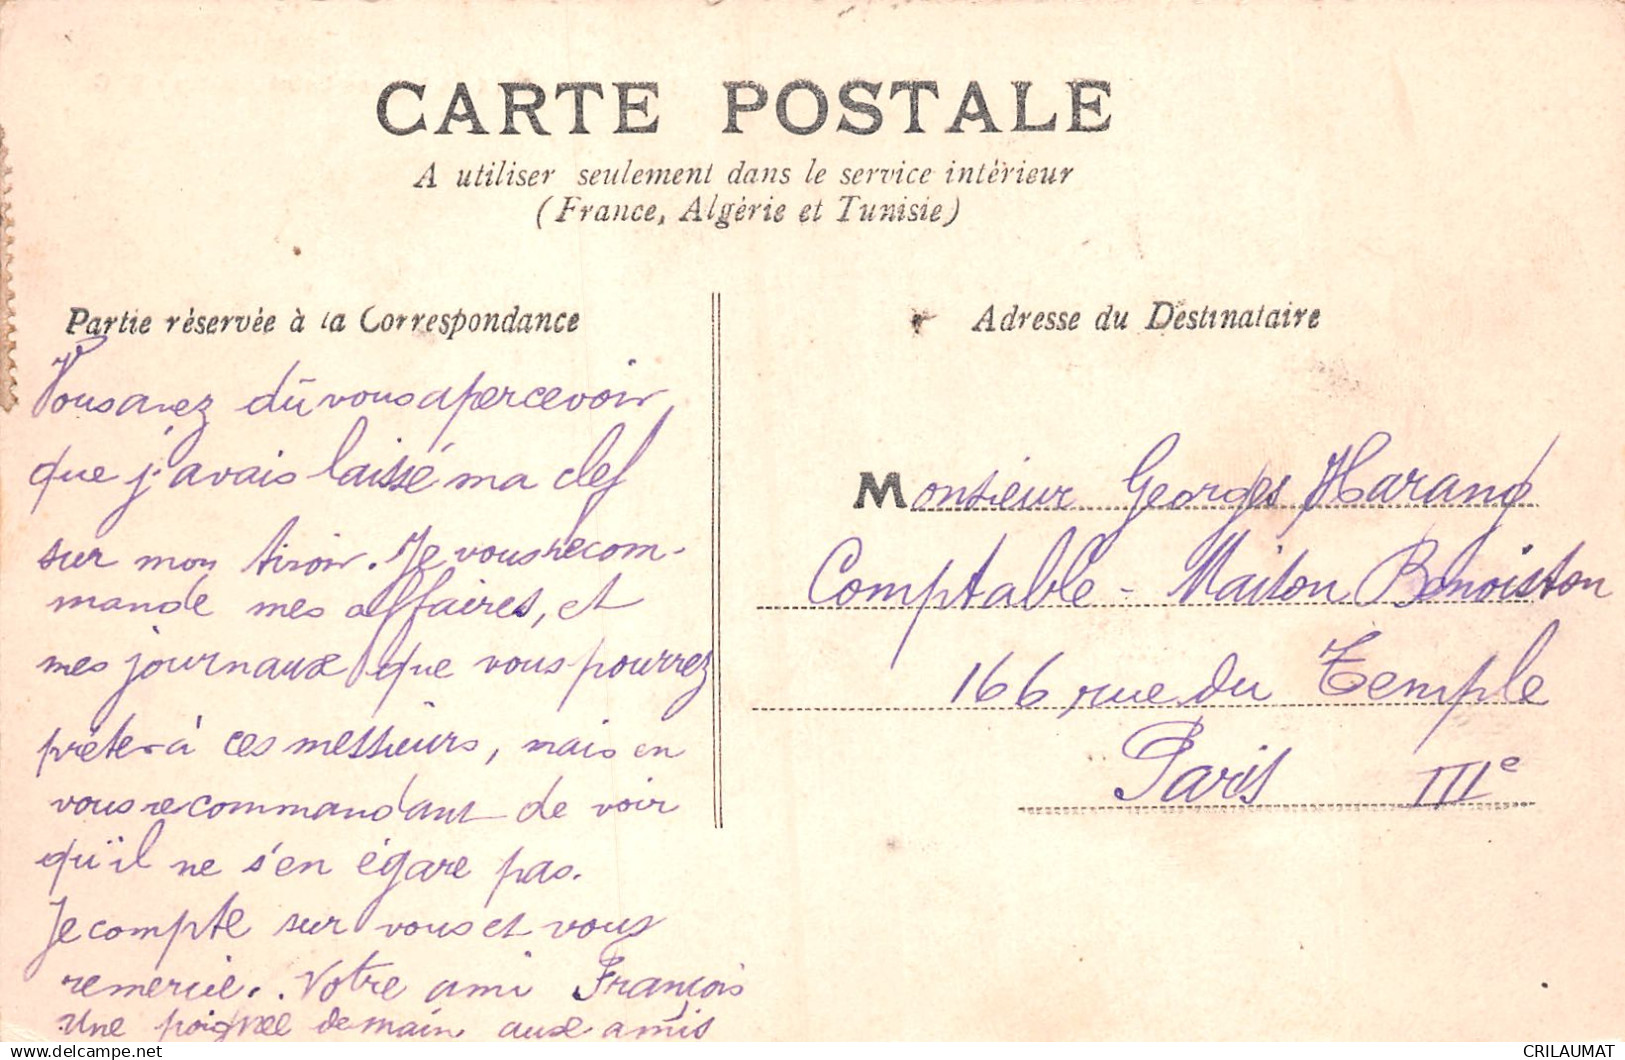 CARTE POSTALE
A utiliser seulement dans le service intérieur
(France, Algérie et Tunisie)
Partie réservée à la Correspondance
Vous avez dû vous apercevoir
que j'avais laissé ma clef
sur mon tiroir. Je vous recom-
mande mes affaires, et
mes journaux que vous pourrez
prêter à ces messieurs, mais en
vous recommandant de voir
qu'il ne s'en égare pas.
Je compte sur vous et vous
remercie. Votre ami François
Une poignée de main aux amis
Adresse du Destinataire
Monsieur Georges Harang
Comptable - Maison Benoiston
166 rue du Temple
Paris IIIe
delcampe.net
CRILAUMAT